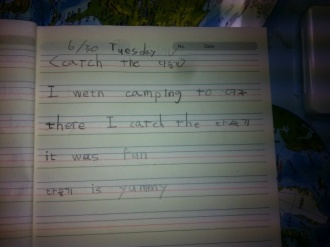 6/30 Tuesday
No. Date
<catch the
I wetn camping to
there I catch the 다슬기
it was fun
다슬기 is yummy